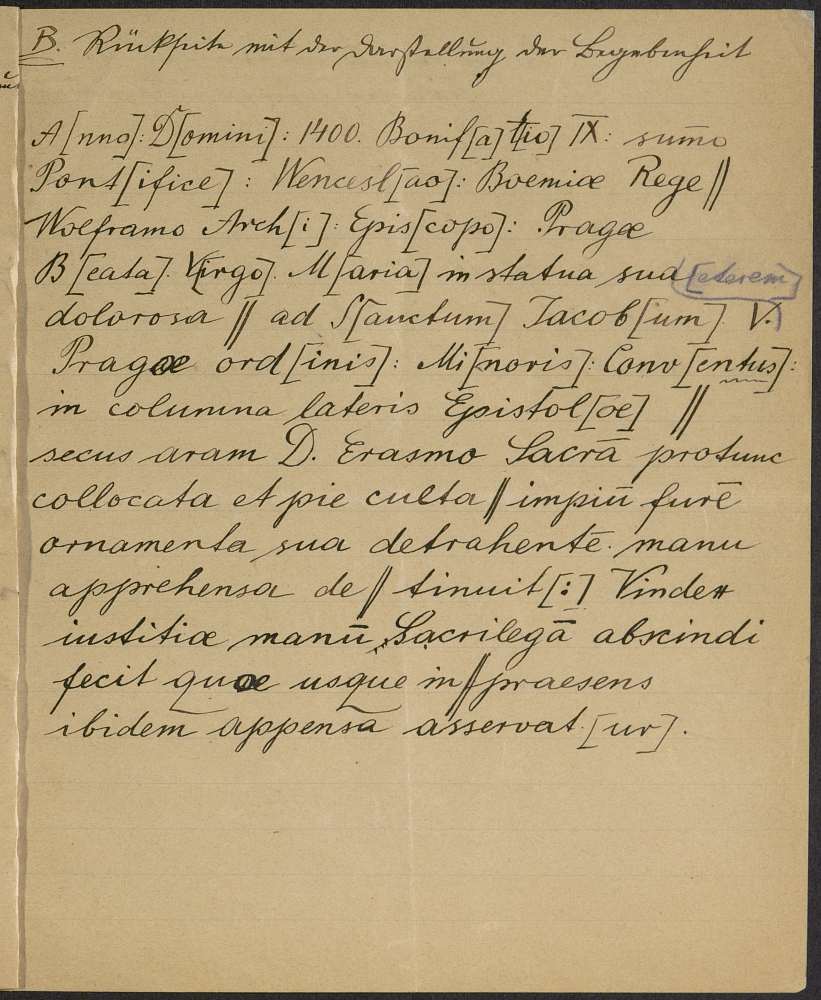 B. Rückseite mit der Darstellung der Begebenheit
A[nno]: D[omini]: 1400. Bonif[a]tio] IX: sum̄o
Pont[ifice]: Wencesl[ao]: Boemiæ Rege //
Wolframo Arch[i]: Epis[copo]: Pragæ
B[eata]. Virgo]. M[aria] in statua sua
dolorosa // ad S[anctum] Jacob[um] V. [eterem]
Pragæ ord[inis]: Mi[noris]: Conv[entus]:
in columna lateris Epistol[æ] //
secus aram D. Erasmo Sacrā protunc
collocata et pie culta // impiū furē
ornamenta sua detrahentē. manu
apprehensa de // tinuit[:] Vindex
iustitiæ manū Sacrilegā abscindi
fecit quæ usque in // praesens
ibidem appensa asservat[ur].